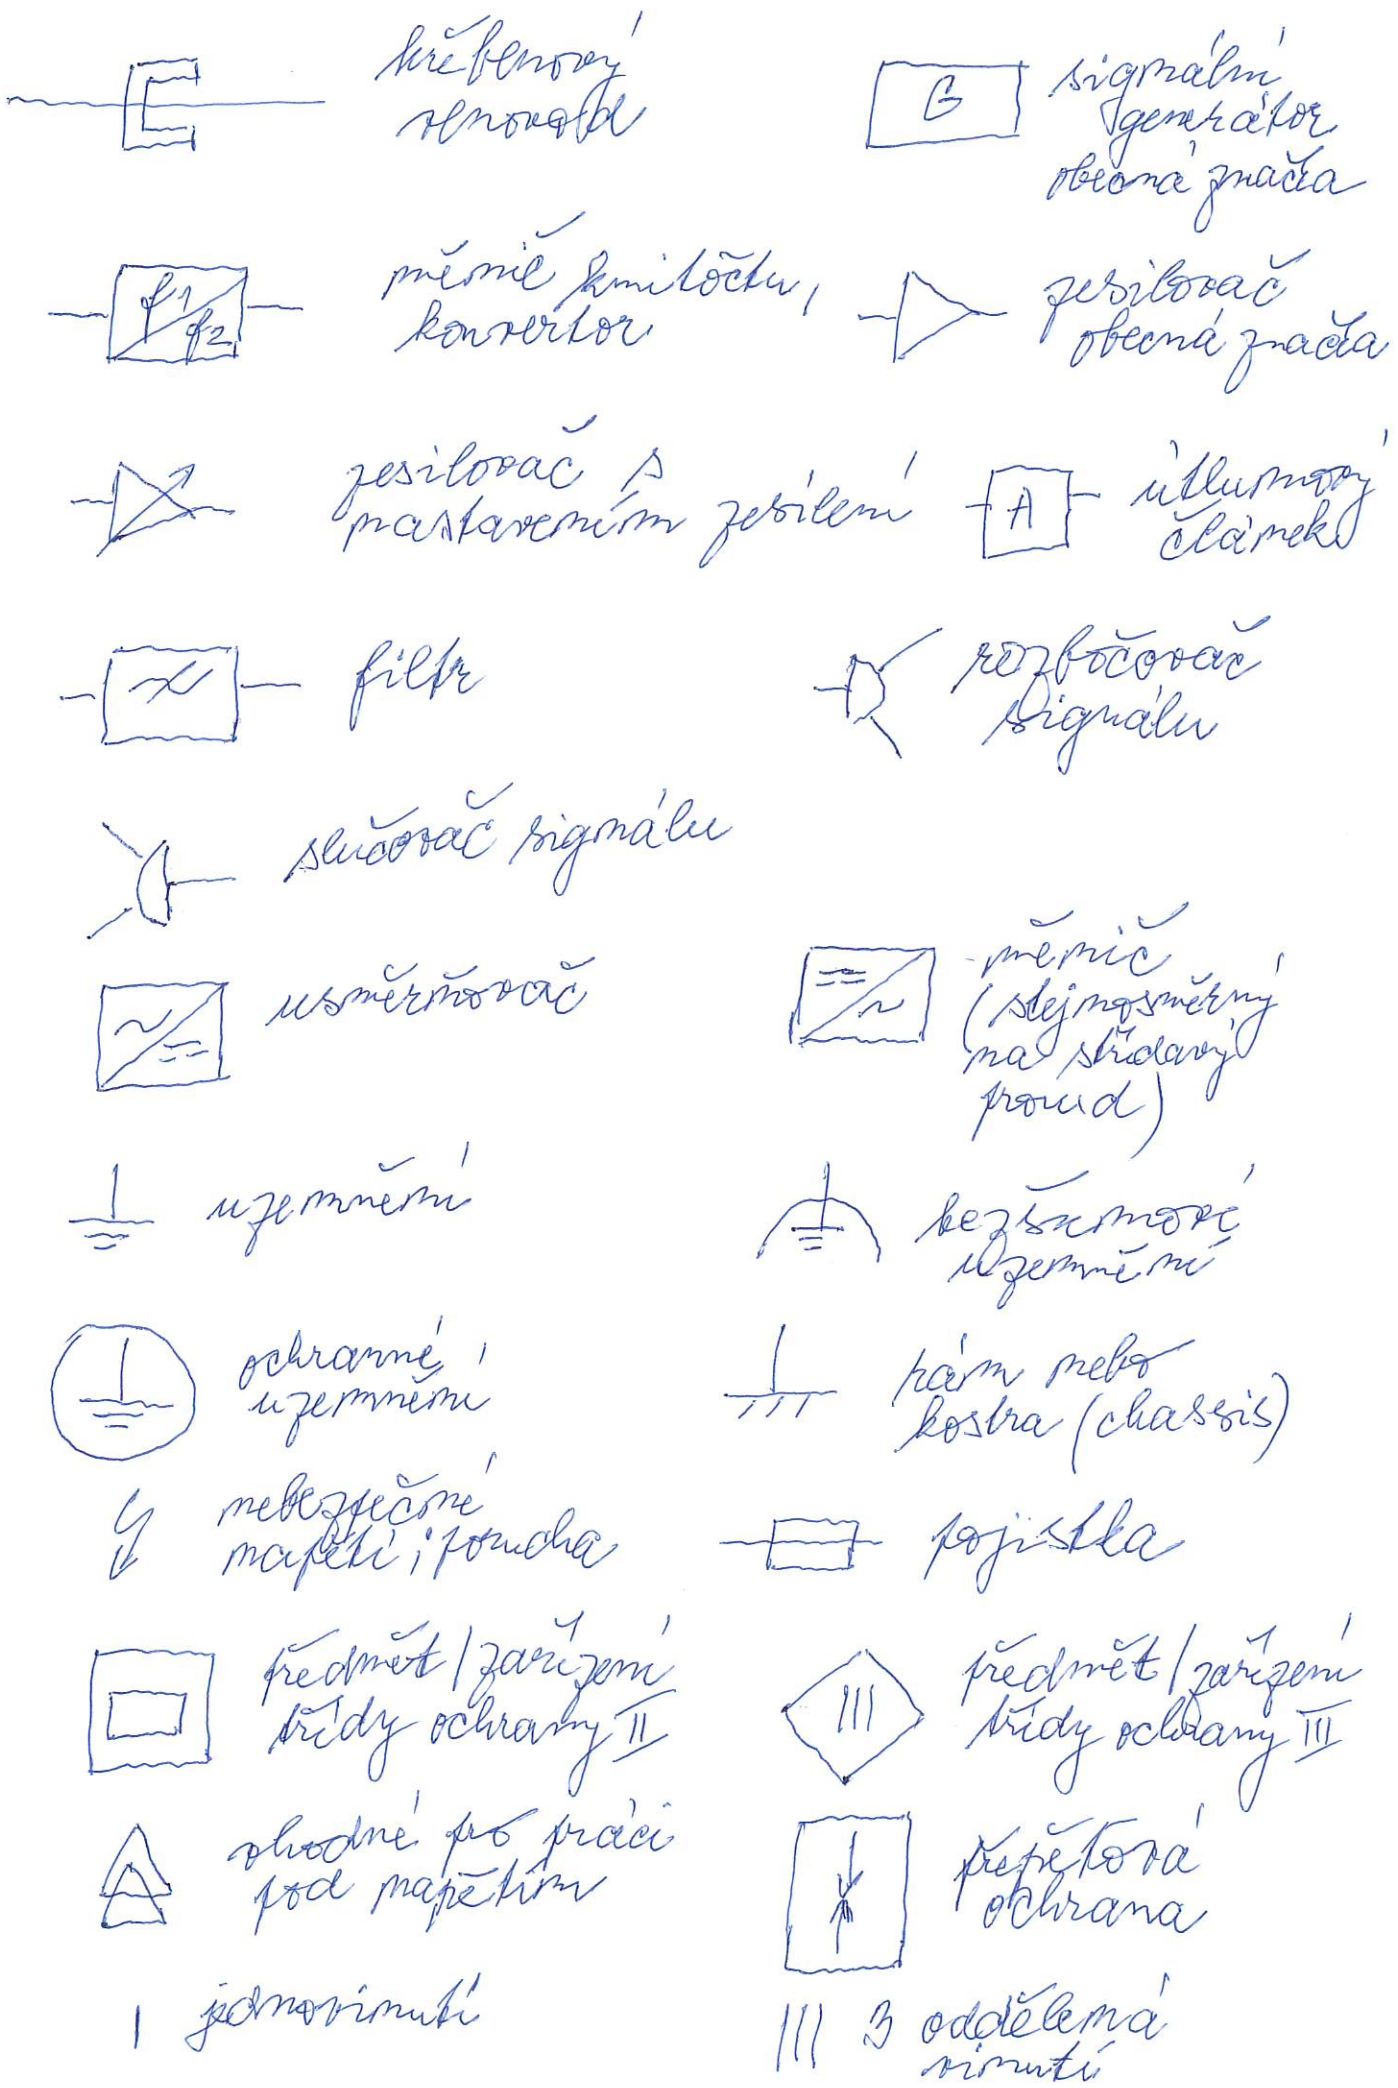 hřebenový
vlnovod
G
signální
generátor
obecná značka
f1
f2
měnič kmitočtu,
konvertor
zesilovač
obecná značka
zesilovač s
nastavením zesílení
A
útlumový
článek
filtr
rozbočovač
signálu
slučovač signálu
usměrňovač
měnič
(stejnosměrný
na střídavý
proud)
uzemnění
bezšumové
uzemnění
ochranné
uzemnění
rám nebo
kostra (chassis)
nebezpečné
napětí; porucha
pojistka
předmět/zařízení
třídy ochrany II
III
předmět/zařízení
třídy ochrany III
vhodné pro práci
pod napětím
přepěťová
ochrana
jednovinutí
3 oddělená
vinutí